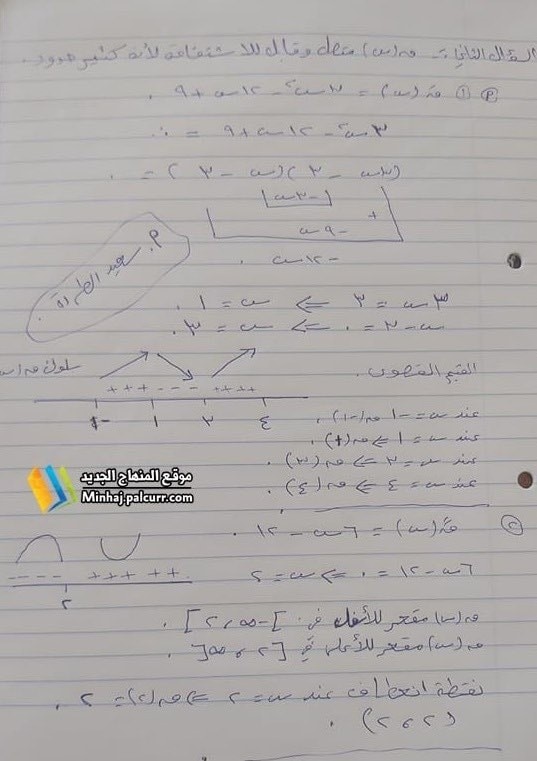 السؤال الثاني :- ق(س) متصل وقابل للاشتقاق لأنه كثير حدود.
P ① قَ(س) = ٣س٢ - ١٢س + ٩ .
٣س٢ - ١٢س + ٩ = ٠
(٣س - ٣)(س - ٣) = ٠
-٣س
+
-٩س
-١٢س .
٣س = ٣ ⇐ س = ١ .
س - ٣ = ٠ ⇐ س = ٣ .
القيم القصوى.
سلوك ق(س)
+ + + - - - + + + +
-١ ١ ٣ ٤
عند س = -١ ق(-١) .
عند س = ١ ⇐ ق(١) .
عند س = ٣ ⇐ ق(٣) .
عند س = ٤ ⇐ ق(٤) .
موقع المنهاج الجديد
Minhaj.palcurr.com
② قً(س) = ٦س - ١٢ .
٦س - ١٢ = ٠ ⇐ س = ٢
- - - - + + + + +
٢
ق(س) مقعر للأسفل في ]-∞ ، ٢] .
ق(س) مقعر للأعلى في [٢ ، ∞[ .
نقطة انعطاف عند س = ٢ ⇐ ق(٢) = ٢ .
(٢ ، ٢) .